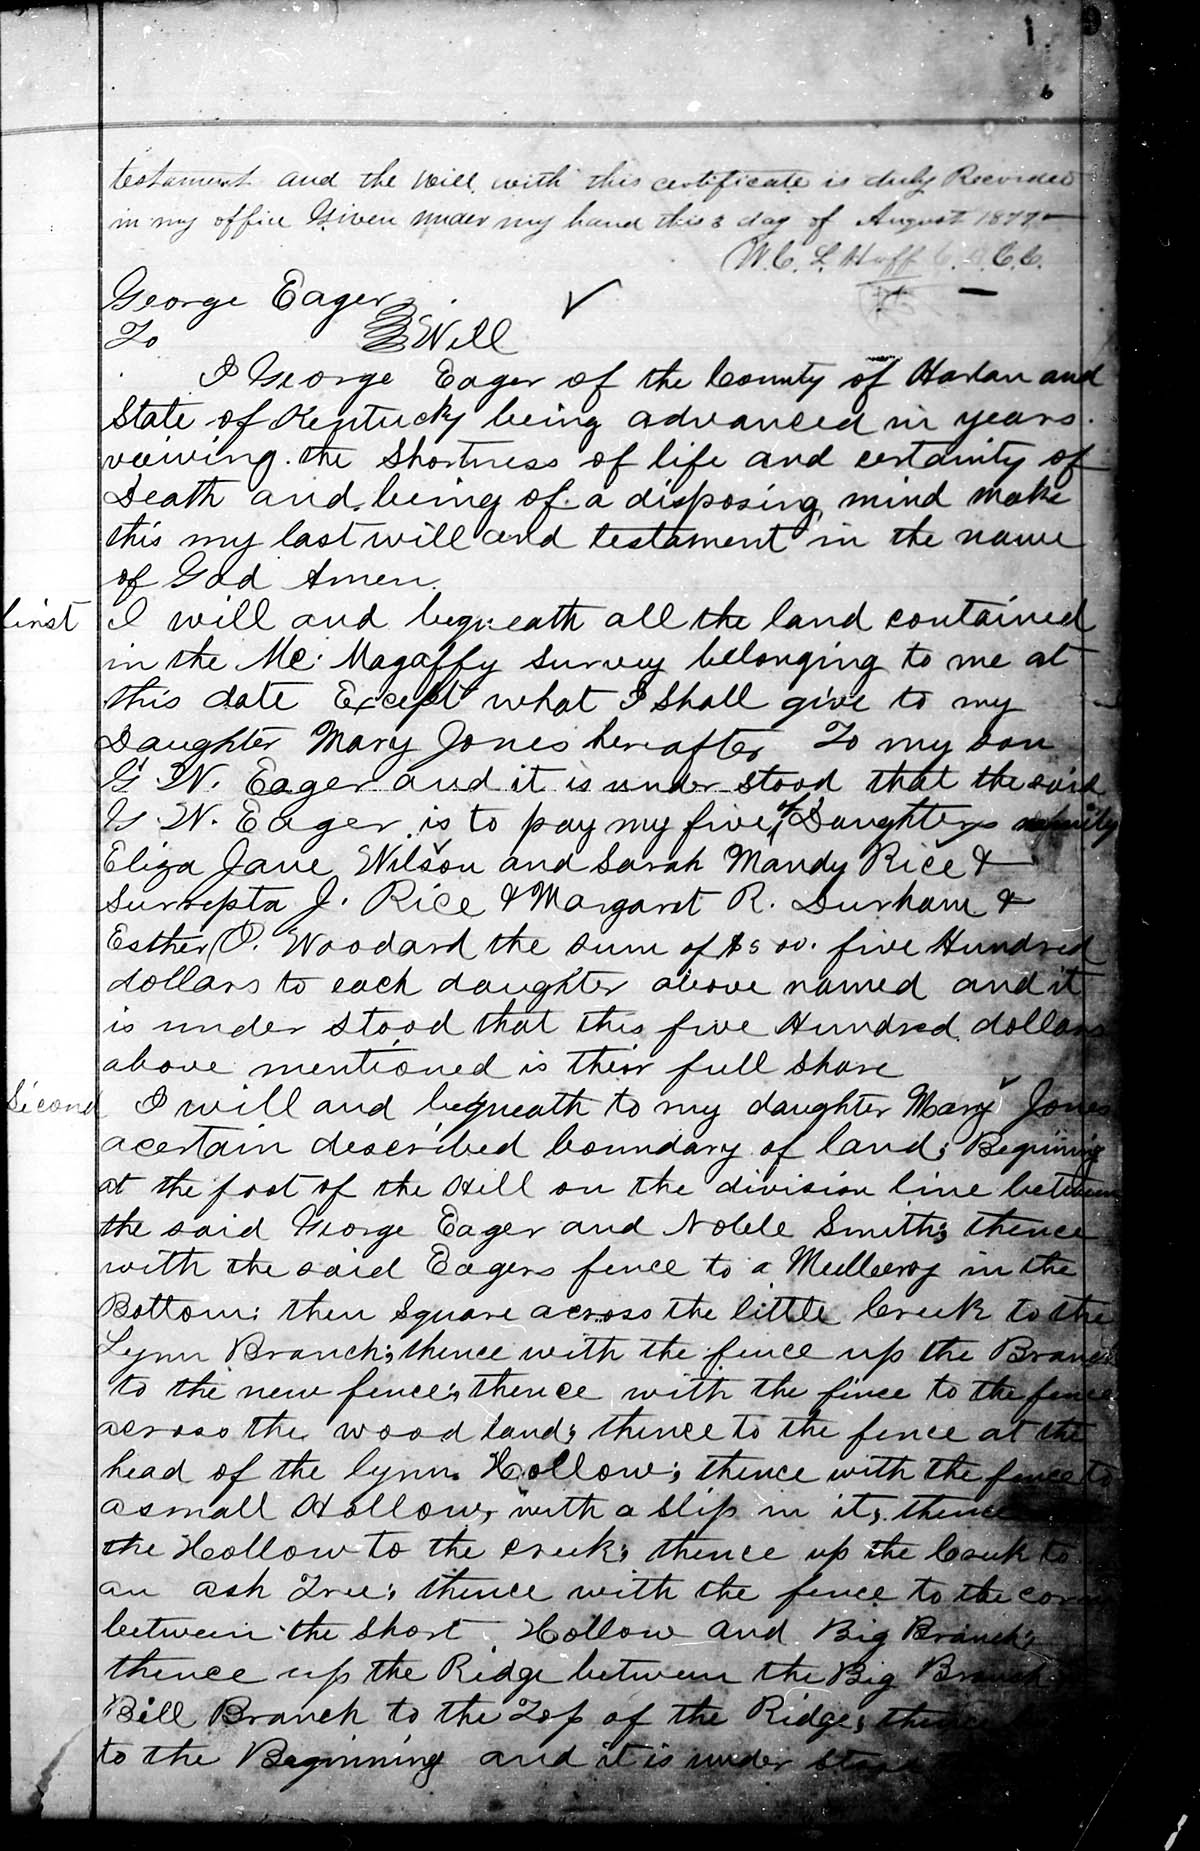 1.
testament and the will with this certificate is duly Recorded
in my office Given under my hand this 3 day of August 187
W. C. L. Huff C. C. C.
George Eager
To Will
I George Eager of the County of Harlan and
State of Kentucky being advanced in years
veiwing the Shortness of life and certainity of
Death and being of a disposing mind make
this my last will and testament in the name
of God Amen.
first I will and bequeath all the land contained
in the Mc. Magaffy Survey belonging to me at
this date Except what I Shall give to my
Daughter Mary Jones hereafter To my son
G. W. Eager and it is under stood that the said
G. W. Eager is to pay my five of Daughters
Eliza Jane Wilson and Sarah Mandy Rice &
Surrepta J. Rice & Margaret R. Durham &
Esther O. Woodard the sum of $500. five Hundred
dollars to each daughter above named and it
is under stood that this five Hundred dollars
above mentioned is their full share
Second I will and bequeath to my daughter Mary Jones
a certain described boundary of land; Begining
at the foot of the Hill on the division line between
the said George Eager and Noble Smith; thence
with the said Eagers fence to a Mulberry in the
Bottom; then Square across the little Creek to the
Lynn Branch; thence with the fence up the Branch
to the new fence; thence with the fince to the fence
across the wood land; thence to the fence at the
head of the lynn Hollow; thence with the fence to
a small Hollow, with a slip in it; thence
the Hollow to the creek; thence up the Creek to
an ash Tree; thence with the fence to the
between the Short Hollow and Big Branch;
thence up the Ridge between the Big Branch
Bill Branch to the Top of the Ridge; thence
to the Beginning and it is under